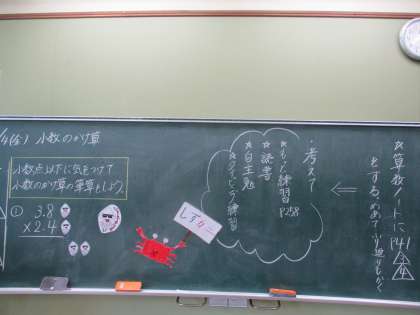 (金) 小数のかけ算
小数点以下に気をつけて
小数のかけ算の筆算をしよう。
① 3.8
×2.4
しずカニ
・考えて
☆もっと練習
P258
☆読書
☆自主勉
☆タイピング練習
⇐
☆算数ノートに P41